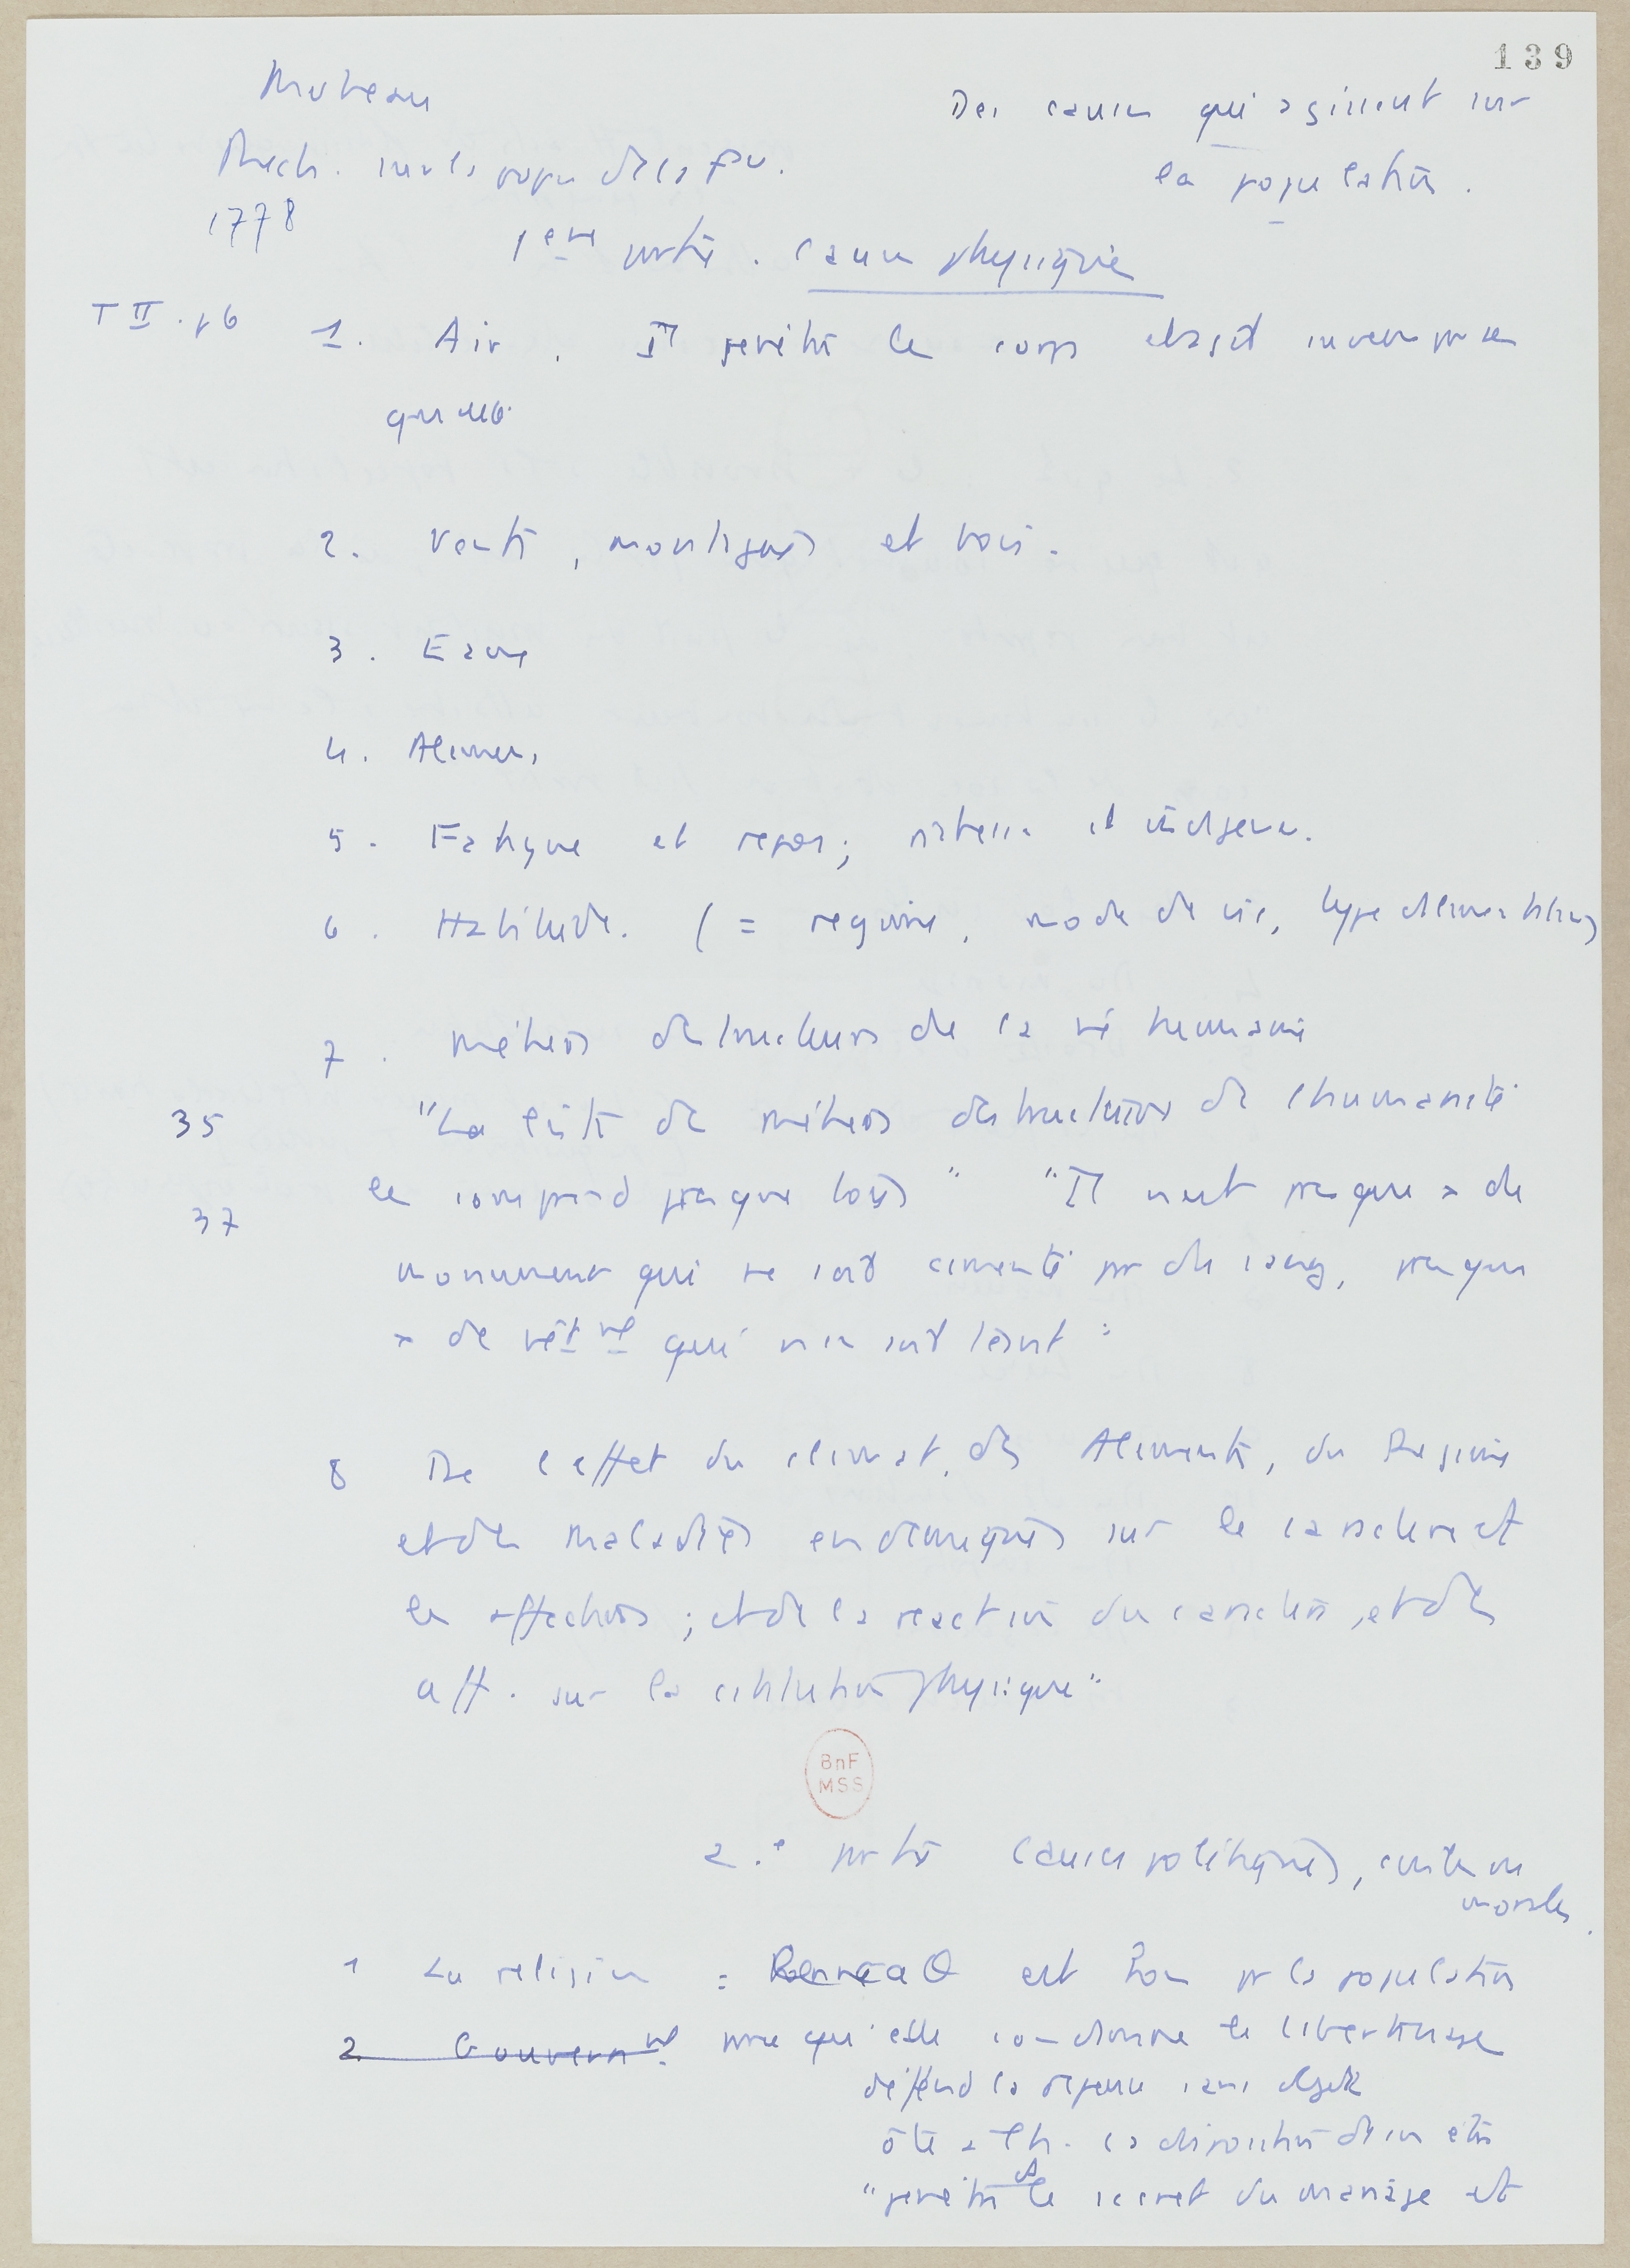 139
Moheau
Des causes qui agissent sur
Rech. sur la popu de la Fr.
la population.
1778
1ere partie. Causes physiques
T II. p 6
1. Air. Il pénètre le corps et agit suivant ses
qualités
2. Vents, montagnes et bois.
3. Eaux
4. Alimens
5. Fatigue et repos; richesse et indigence.
6. Habitude. (= régime, mode de vie, type d'alimentation)
7. Métiers destructeurs de la vie humaine
35
"La liste des métiers destructeurs de l'humanité
les comprend presque tous" "Il n'est presque x de
37
monument qui ne soit cimenté par du sang, presque
x de vêtmt qui n'en soit teint"
8 De l'effet du climat, des Aliments, du Régime
et des maladies endémiques sur le caractère et
les affections; et de la réaction du caractère, et des
aff. sur la constitution physique"
BnF
MSS
2.e partie Causes politiques, civiles ou
morales.
1 La religion : est bon pr la population
2. Gouvernmt. parce qu'elle condamne le libertinage
défend la
ôte à l'h. la disposition de son être
"pénètre ds le secret du mariage et